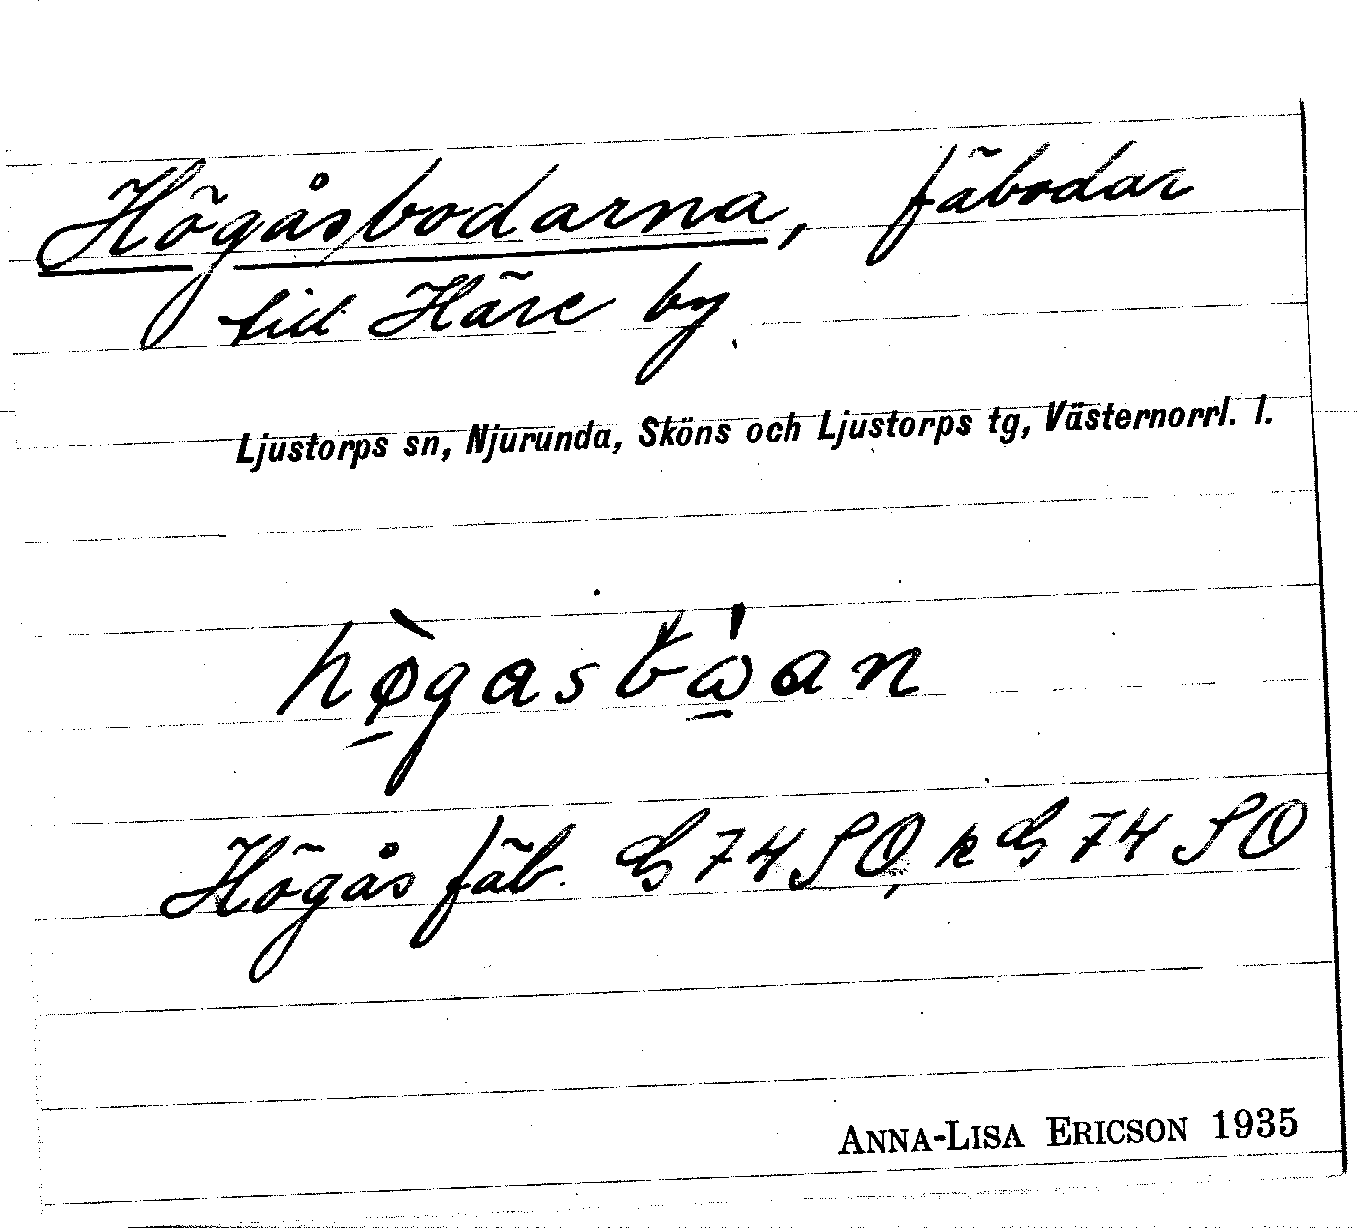 Högåsbodarna, fäbodar
till Häre by.
Ljustorps sn, Njurunda, Sköns och Ljustorps tg, Västernorrl. l.
hø̱̀gasbώ̱an
Högås fäb. G 74 SO, k G 74 SO
ANNA-LISA ERICSON 1935